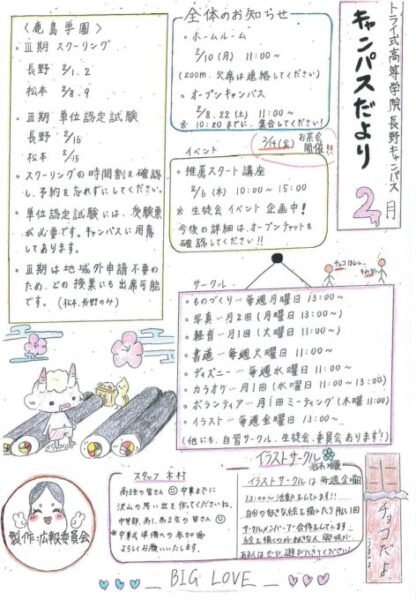 トライ式高等学院長野キャンパス
キャンパスだより
2月
全体のお知らせ
・ホームルーム
2/10(月) 11:00~
(zoom、欠席は連絡してください)
・オープンキャンパス
2/8.22(土) 11:00~
※10:20までに、集合してください!
2/14(金) お茶会
開催!!
イベント
・推薦スタート講座
2/6(木) 10:00~15:00
※生徒会イベント企画中!
今後の詳細は、オープンチャットを
確認してください!!
〈鹿島学園〉
・Ⅲ期 スクーリング
長野 2/1.2
松本 2/8.9
・Ⅲ期 単位認定試験
長野 2/16
松本 2/15
・スクーリングの時間割を確認
し、予約を忘れずにしてください。
・単位認定試験には、受験票
が必要です。キャンパスに用意
してあります。
・Ⅲ期は地域外申請不要の
ため、どの授業にも出席可能
です。(松本、長野のみ)
サークル
・ものづくり…毎週月曜日 13:00~
・写真…月2回(月曜日) 13:00~
・軽音…月1回(火曜日) 11:00~
・書道…毎週火曜日 11:00~
・ディズニー…毎週水曜日 11:00~
・カラオケ…月1回(水曜日 11:00~13:00)
・ボランティア…月1回ミーティング(木曜日 11:00~)
・イラスト…毎週金曜日 13:00~
(他にも、自習サークル、生徒会、委員会あります!)
スタッフ 木村
高3生の皆さん 卒業までに
沢山の思い出を作ってくださいね。
中等部、高1、高2生の皆さん
卒業式準備への参加
よろしくお願いいたします。
イラストサークル
イラストサークルは毎週金曜
13:00~活動をしています!!
自分の好きな絵を描いたり月に1回
サークルメンバーで合作をしています
チョコだよ
製作:広報委員会
BIG LOVE